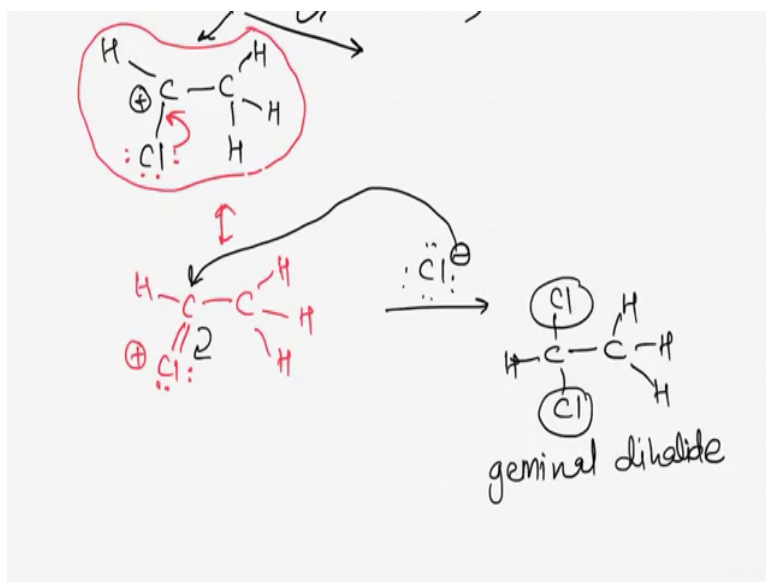 H
C — C
H
⊕
H
:Cl:
H
H
C — C
H
H
⊕
Cl:
H
:Cl:
⊖
Cl
H
H — C — C — H
Cl
H
geminal dihalide